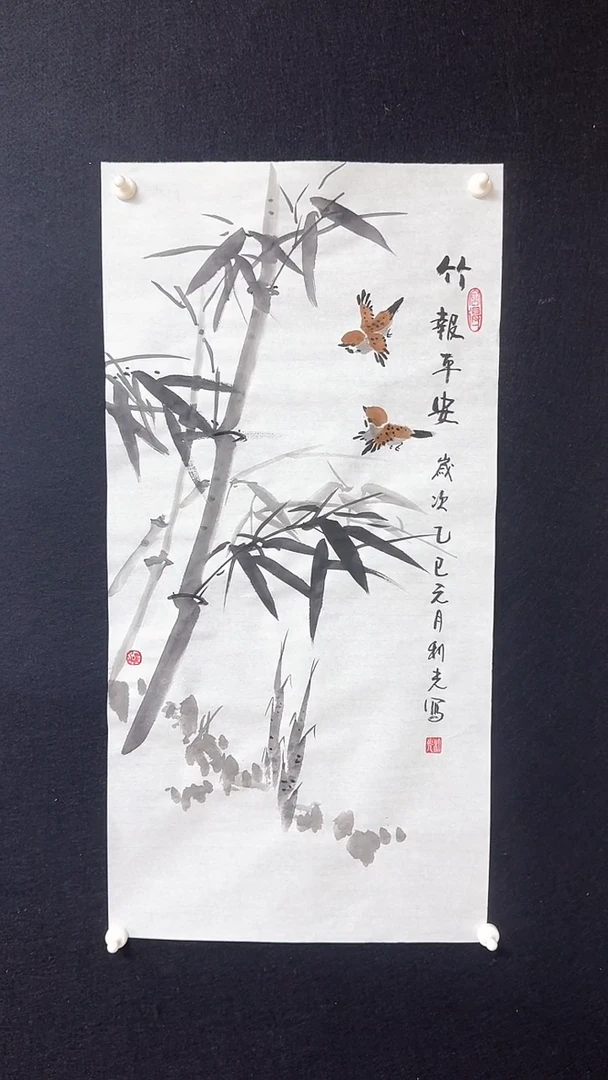 竹報平安
歲次乙巳元月利光寫